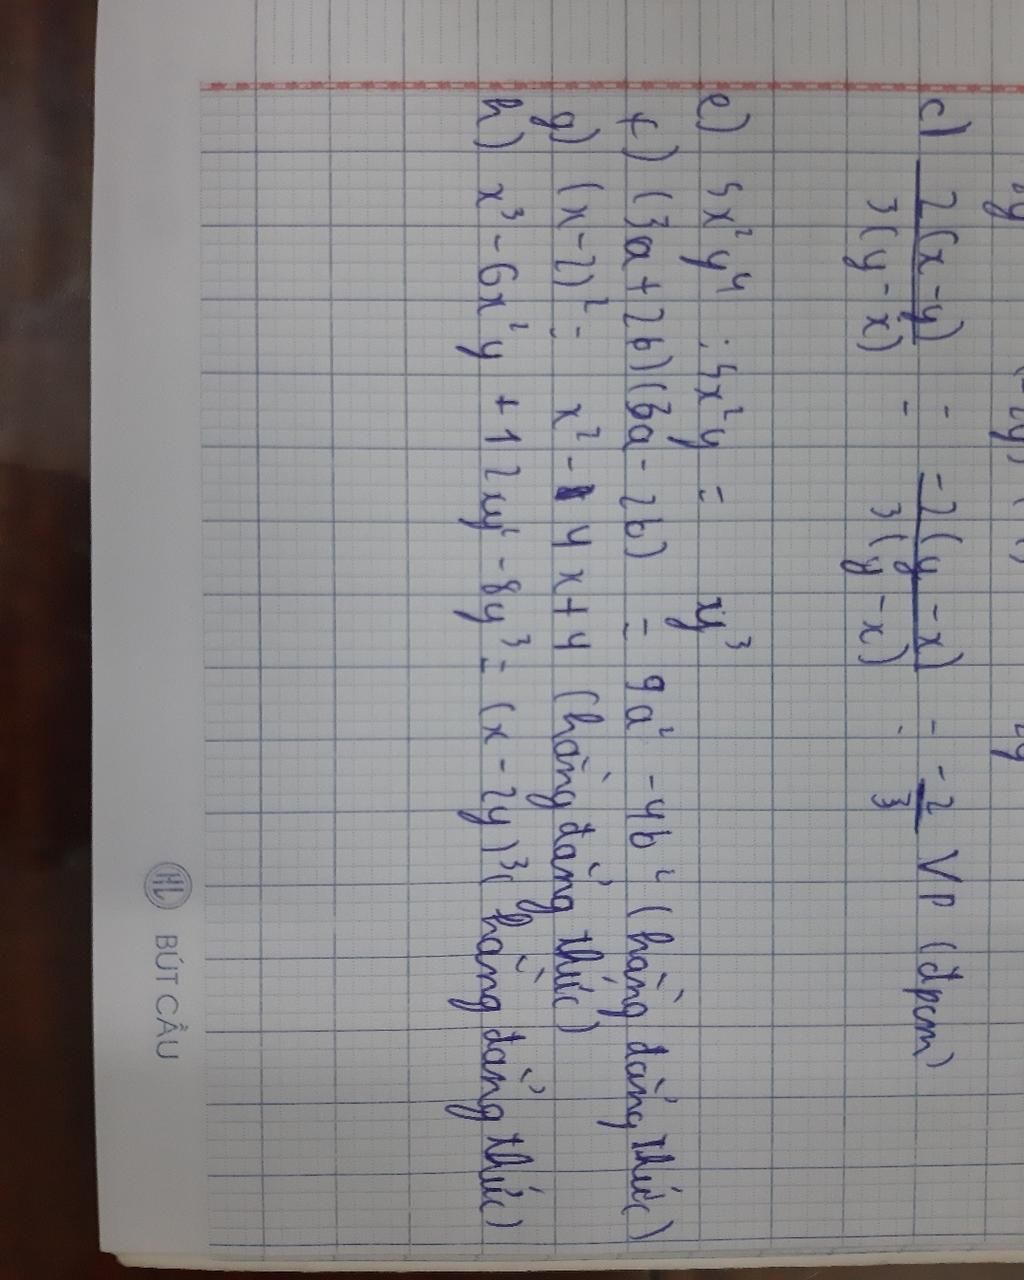 c) 2(x-y) / 3(y-x) = -2(y-x) / 3(y-x) = -2/3 VP (đpcm)
e) 5x²y⁴ : 5x²y = xy³
f) (3a+2b)(3a-2b) = 9a² -4b² (hằng đẳng thức)
g) (x-2)² = x² - 4x+4 (hằng đẳng thức)
h) x³ - 6x²y + 12xy² - 8y³ = (x - 2y)³ (hằng đẳng thức)
HL BÚT CẦU